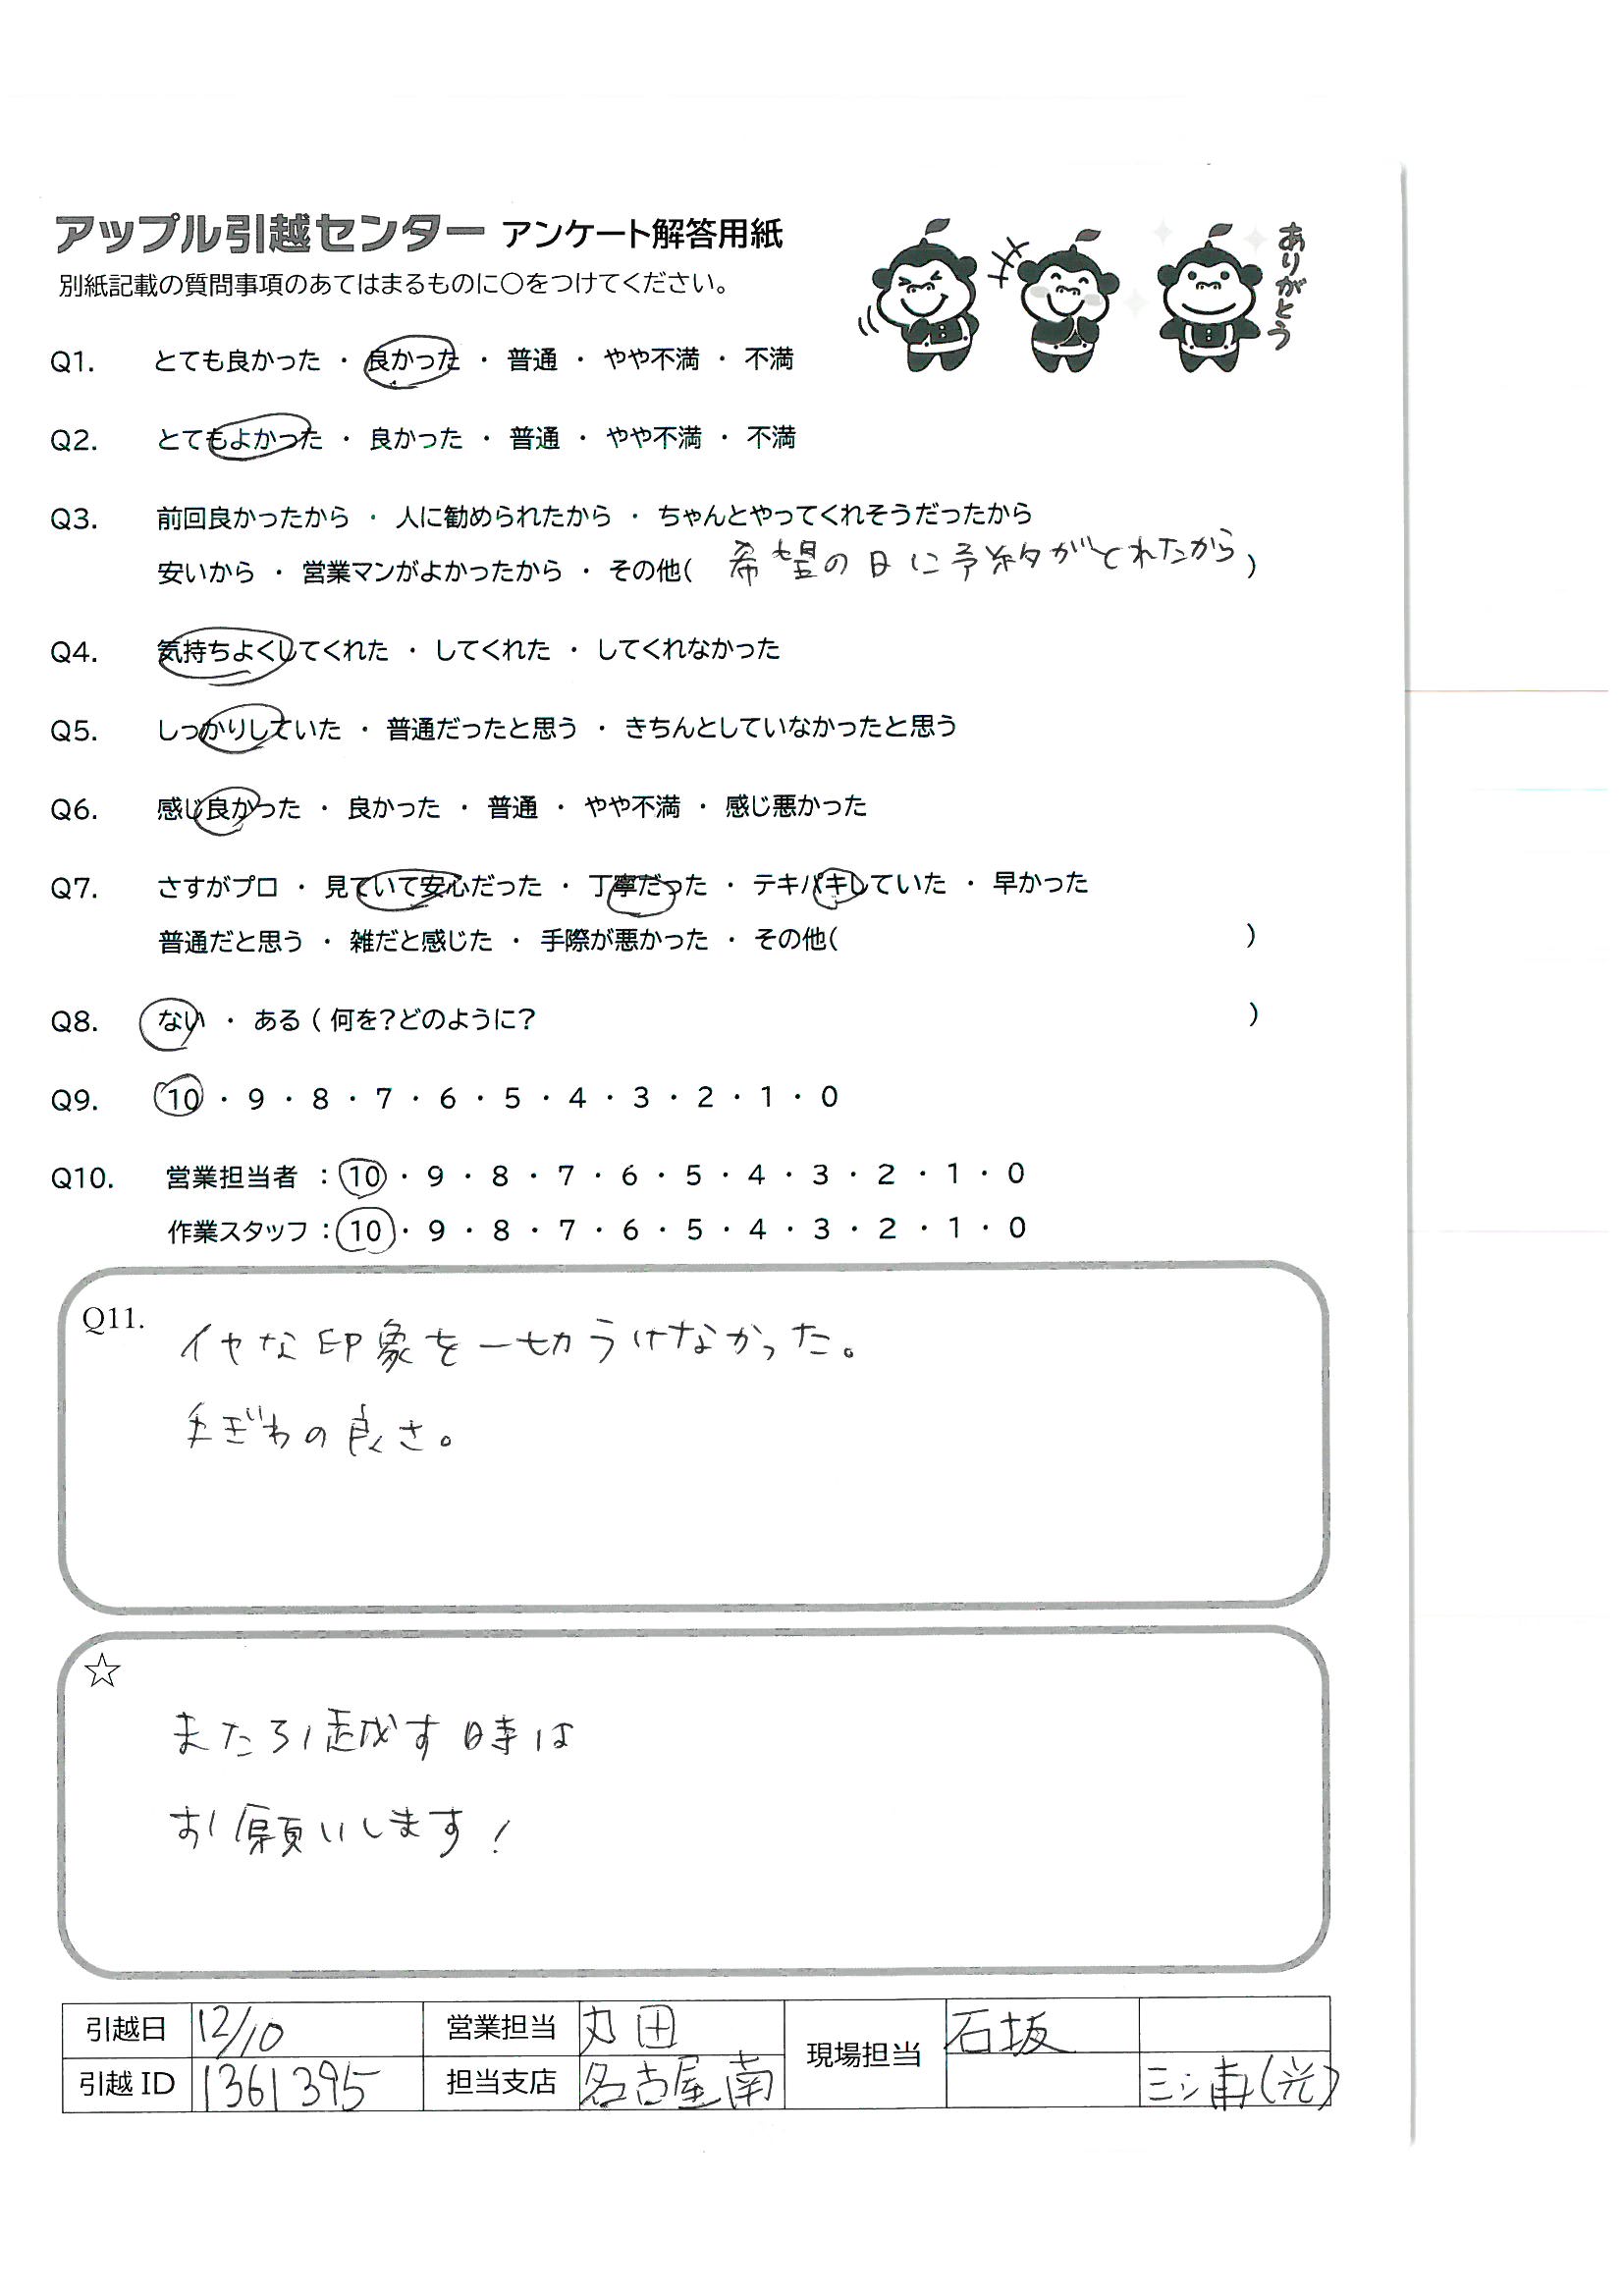 アップル引越センター アンケート解答用紙
ありがとう
別紙記載の質問事項のあてはまるものに〇をつけてください。
Q1. とても良かった ・ 良かった ・ 普通 ・ やや不満 ・ 不満
Q2. とてもよかった ・ 良かった ・ 普通 ・ やや不満 ・ 不満
Q3. 前回良かったから ・ 人に勧められたから ・ ちゃんとやってくれそうだったから
安いから ・ 営業マンがよかったから ・ その他( 希望の日に予約がとれたから )
Q4. 気持ちよくしてくれた ・ してくれた ・ してくれなかった
Q5. しっかりしていた ・ 普通だったと思う ・ きちんとしていなかったと思う
Q6. 感じ良かった ・ 良かった ・ 普通 ・ やや不満 ・ 感じ悪かった
Q7. さすがプロ ・ 見ていて安心だった ・ 丁寧だった ・ テキパキしていた ・ 早かった
普通だと思う ・ 雑だと感じた ・ 手際が悪かった ・ その他( )
Q8. ない ・ ある ( 何を?どのように? )
Q9. 10 ・ 9 ・ 8 ・ 7 ・ 6 ・ 5 ・ 4 ・ 3 ・ 2 ・ 1 ・ 0
Q10. 営業担当者 : 10 ・ 9 ・ 8 ・ 7 ・ 6 ・ 5 ・ 4 ・ 3 ・ 2 ・ 1 ・ 0
作業スタッフ : 10 ・ 9 ・ 8 ・ 7 ・ 6 ・ 5 ・ 4 ・ 3 ・ 2 ・ 1 ・ 0
Q11. イヤな印象を一切うけなかった。
手ぎわの良さ。
☆
また引越す時は
お願いします!
引越日 12/10 営業担当 丸田 現場担当 石坂
引越ID 1361395 担当支店 名古屋南 三浦(光)